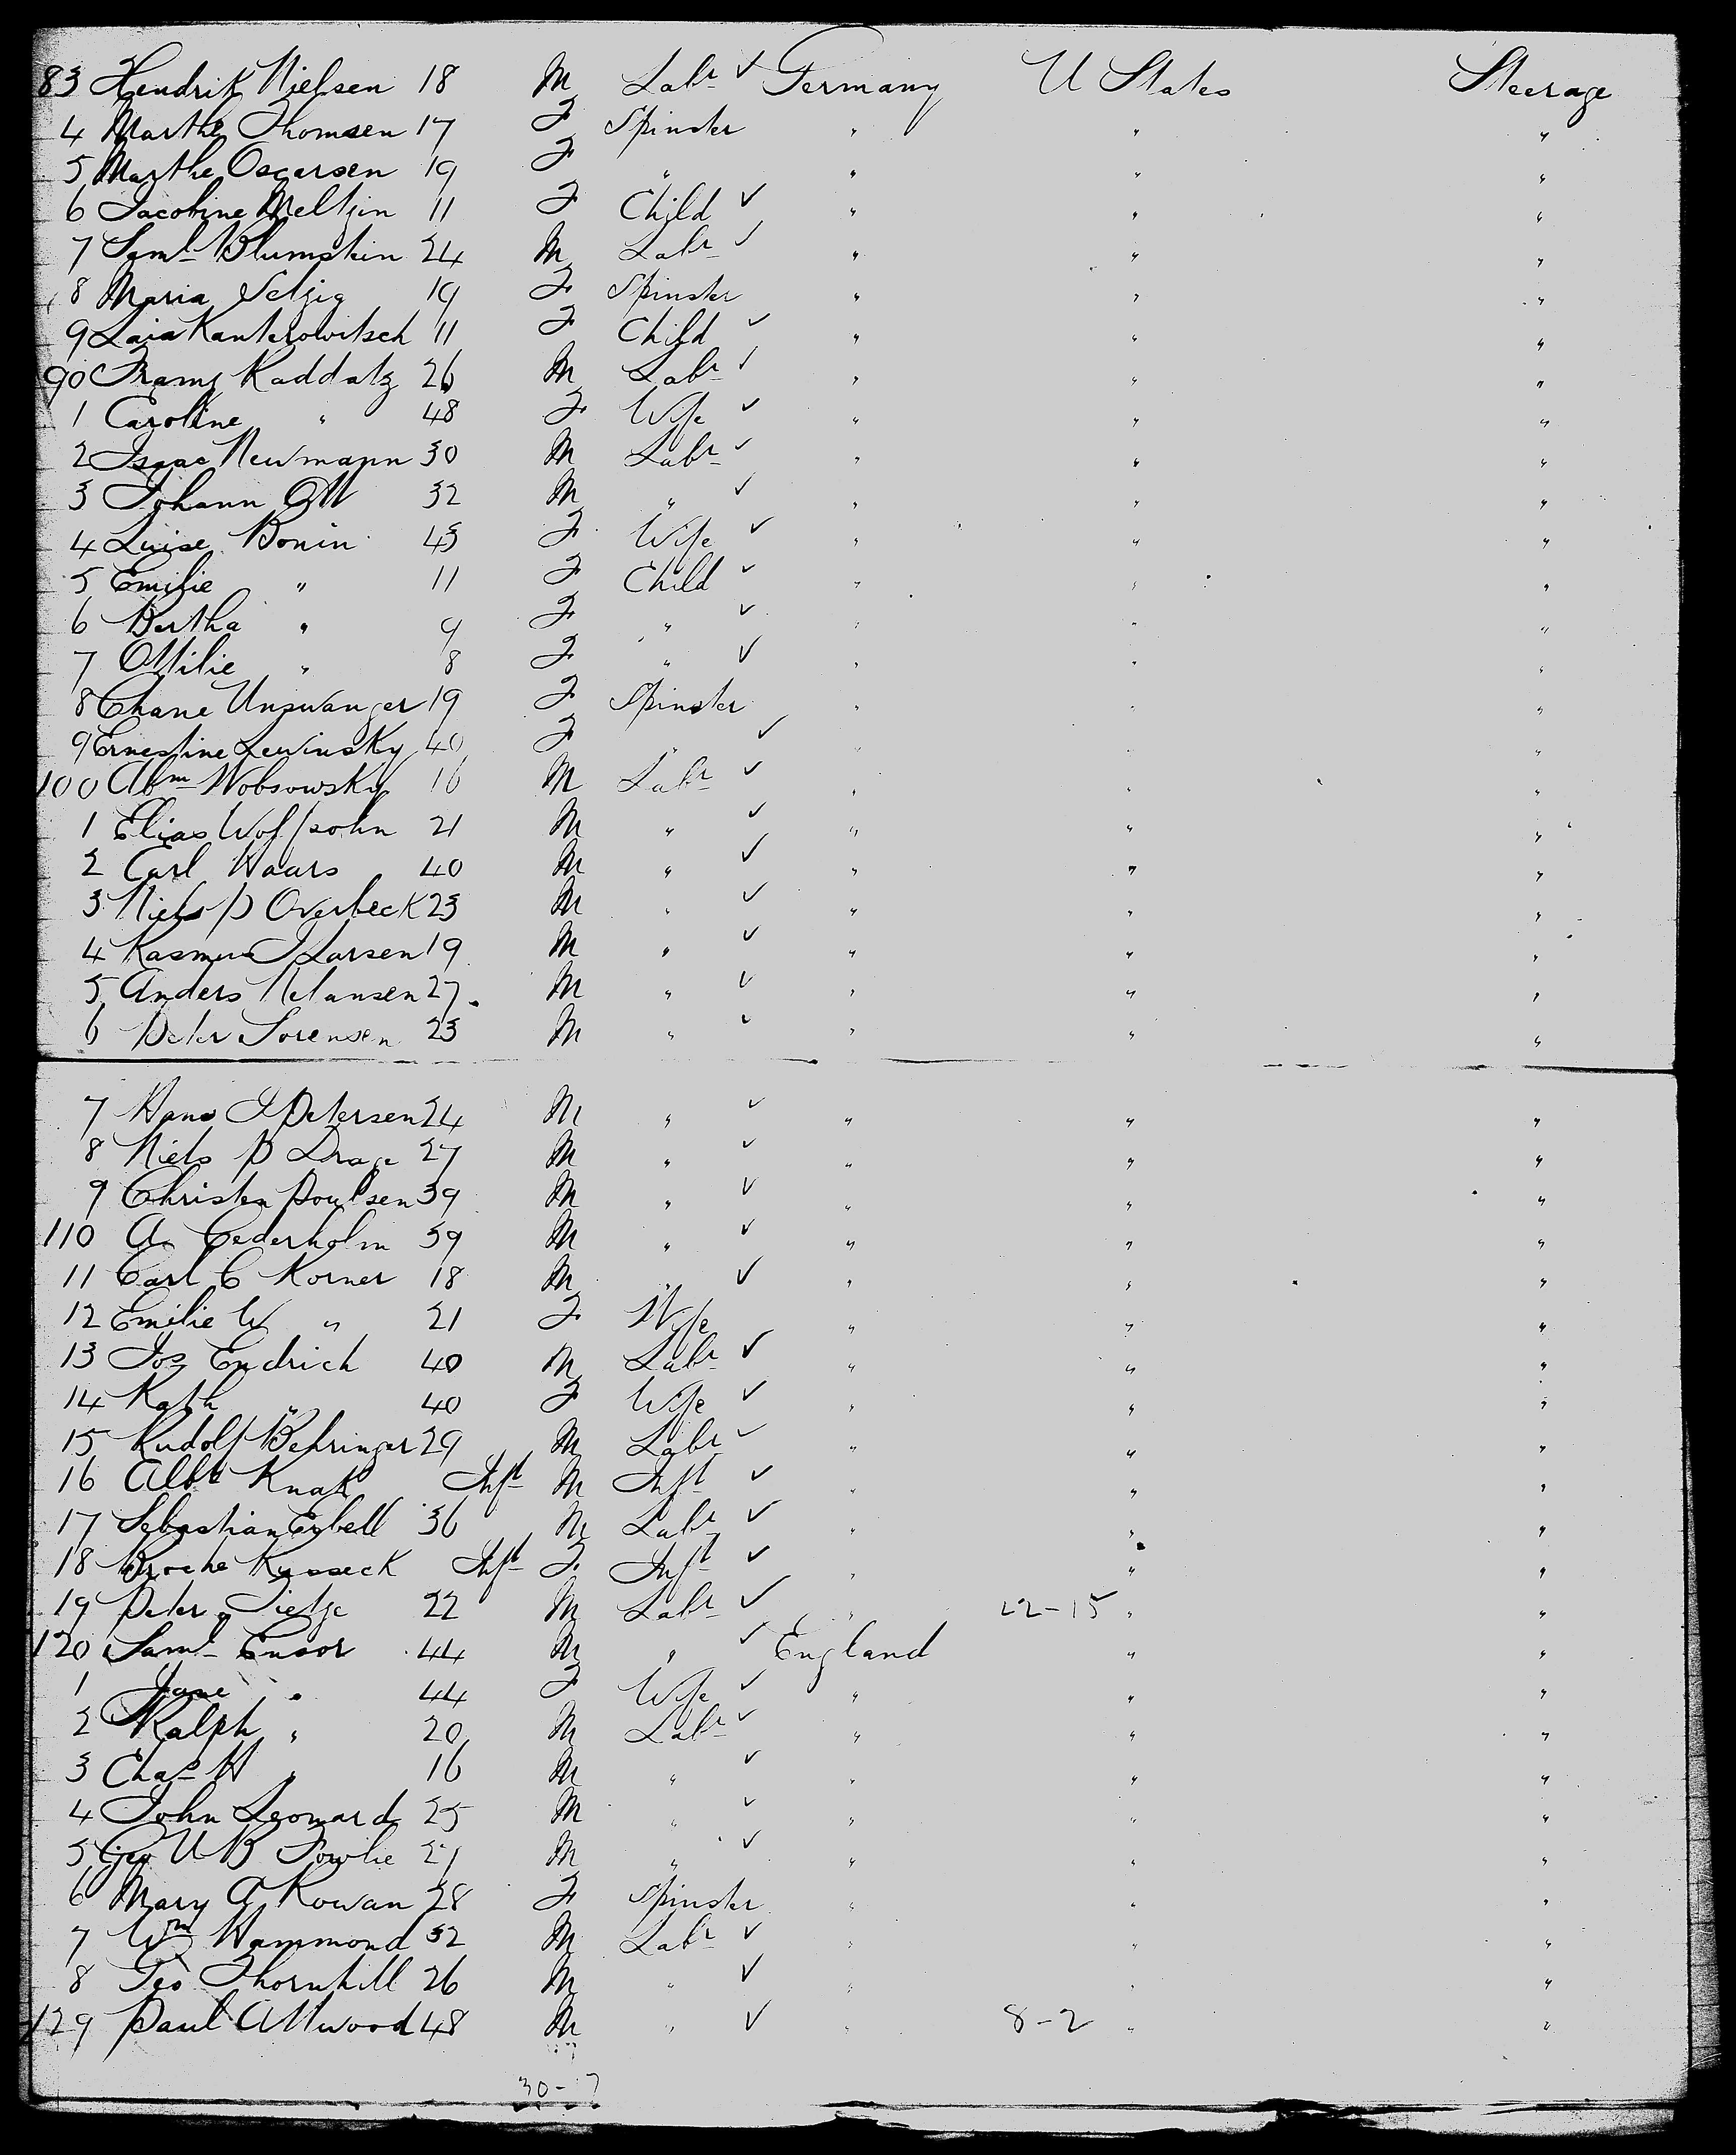 83 Hendrik Nielsen 18 M Labr ✓ Germany U States Steerage
4 Marthe Thomsen 17 F Spinster " " "
5 Marthe Oscarsen 19 F " " " "
6 Jacobine Meltzin 11 F Child ✓ " " "
7 Saml Blumstein 24 M Labr ✓ " " "
8 Maria Selzig 19 F Spinster " " "
9 Laia Kanterowitsch 11 F Child ✓ " " "
90 Franz Raddatz 26 M Labr ✓ " " "
1 Caroline " 48 F Wife ✓ " " "
2 Isaac Newmann 30 M Labr ✓ " " "
3 Johann Ott 32 M " ✓ " " "
4 Luise Bonin 45 F Wife ✓ " " "
5 Emilie " 11 F Child ✓ " " "
6 Bertha " 9 F " ✓ " " "
7 Ottilie " 8 F " ✓ " " "
8 Chane Unswanger 19 F Spinster " " "
9 Ernestine Lewinsky 40 F " ✓ " " "
100 Abm Wobsowsky 16 M Labr ✓ " " "
1 Elias Wolfsohn 21 M " ✓ " " "
2 Carl Haars 40 M " ✓ " " "
3 Niels P Overbeck 23 M " ✓ " " "
4 Rasmus J Larsen 19 M " ✓ " " "
5 Anders N Hansen 27 M " ✓ " " "
6 Peter Sorensen 23 M " ✓ " " "
7 Hans J Petersen 24 M " ✓ " " "
8 Niels P Drage 27 M " ✓ " " "
9 Christen Poulsen 39 M " ✓ " " "
110 A. Cederholm 39 M " ✓ " " "
11 Carl C Korner 18 M " ✓ " " "
12 Emilie W " 21 F Wife " " "
13 Jos Endrich 40 M Labr ✓ " " "
14 Kath " 40 F Wife ✓ " " "
15 Rudolf Behringer 29 M Labr ✓ " " "
16 Albt Knak Inft M Inft ✓ " " "
17 Sebastian Ezbell 36 M Labr ✓ " " "
18 Broche Kusseck Inft F Inft ✓ " " "
19 Peter Tietze 22 M Labr ✓ " 22-15 " "
120 Saml Ensor 44 M " ✓ England " "
1 Jane " 44 F Wife ✓ " " "
2 Ralph " 20 M Labr ✓ " " "
3 Chas H " 16 M " ✓ " " "
4 John Leonard 25 M " ✓ " " "
5 Geo W B Fowlie 21 M " ✓ " " "
6 Mary A Rowan 28 F Spinster " " "
7 Wm Hammond 32 M Labr ✓ " " "
8 Geo Thornhill 26 M " ✓ " " "
129 Paul Attwood 48 M " ✓ " 8-2 " "